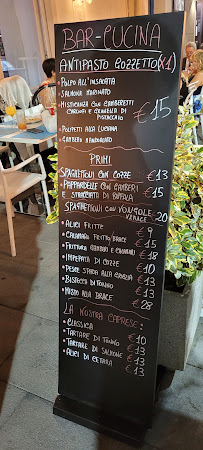 BAR-CUCINA
ANTIPASTO BOZZETTO(X1)
• POLPO ALL'INSALATA
• SALMONE MARINATO
• MISTICANZA CON GAMBERETTI
CAROTA E GRANELLA DI
PISTACCHIO
€15
• POLPETTI ALLA LUCIANA
• GAMBERO MANDORLATO
PRIMI
SPAGHETTONI CON COZZE €13
• PAPPARDELLE CON GAMBERI
E STRACCIATA DI BUFALA €15
SPAGHETTONI CON VONGOLE
VERACE 20
• ALICI FRITTE €9
• CALAMARO FRITTO/BRACE €15
• FRITTURA GAMBERI E CALAMARI €18
• IMPEPATA DI COZZE €10
• PESCE SPADA ALLA GRIGLIA €13
• BISTECCA DI TONNO €13
• MISTO ALLA BRACE €28
LA NOSTRA CAPRESE:
• CLASSICA €10
• TARTARE DI TONNO €13
• TARTARE DI SALMONE €13
• ALICI DI CETARA €13